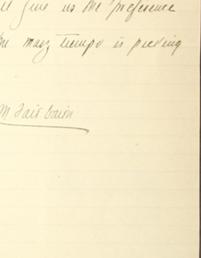 give us the preference
may tempo is pressing
M Fairbairn